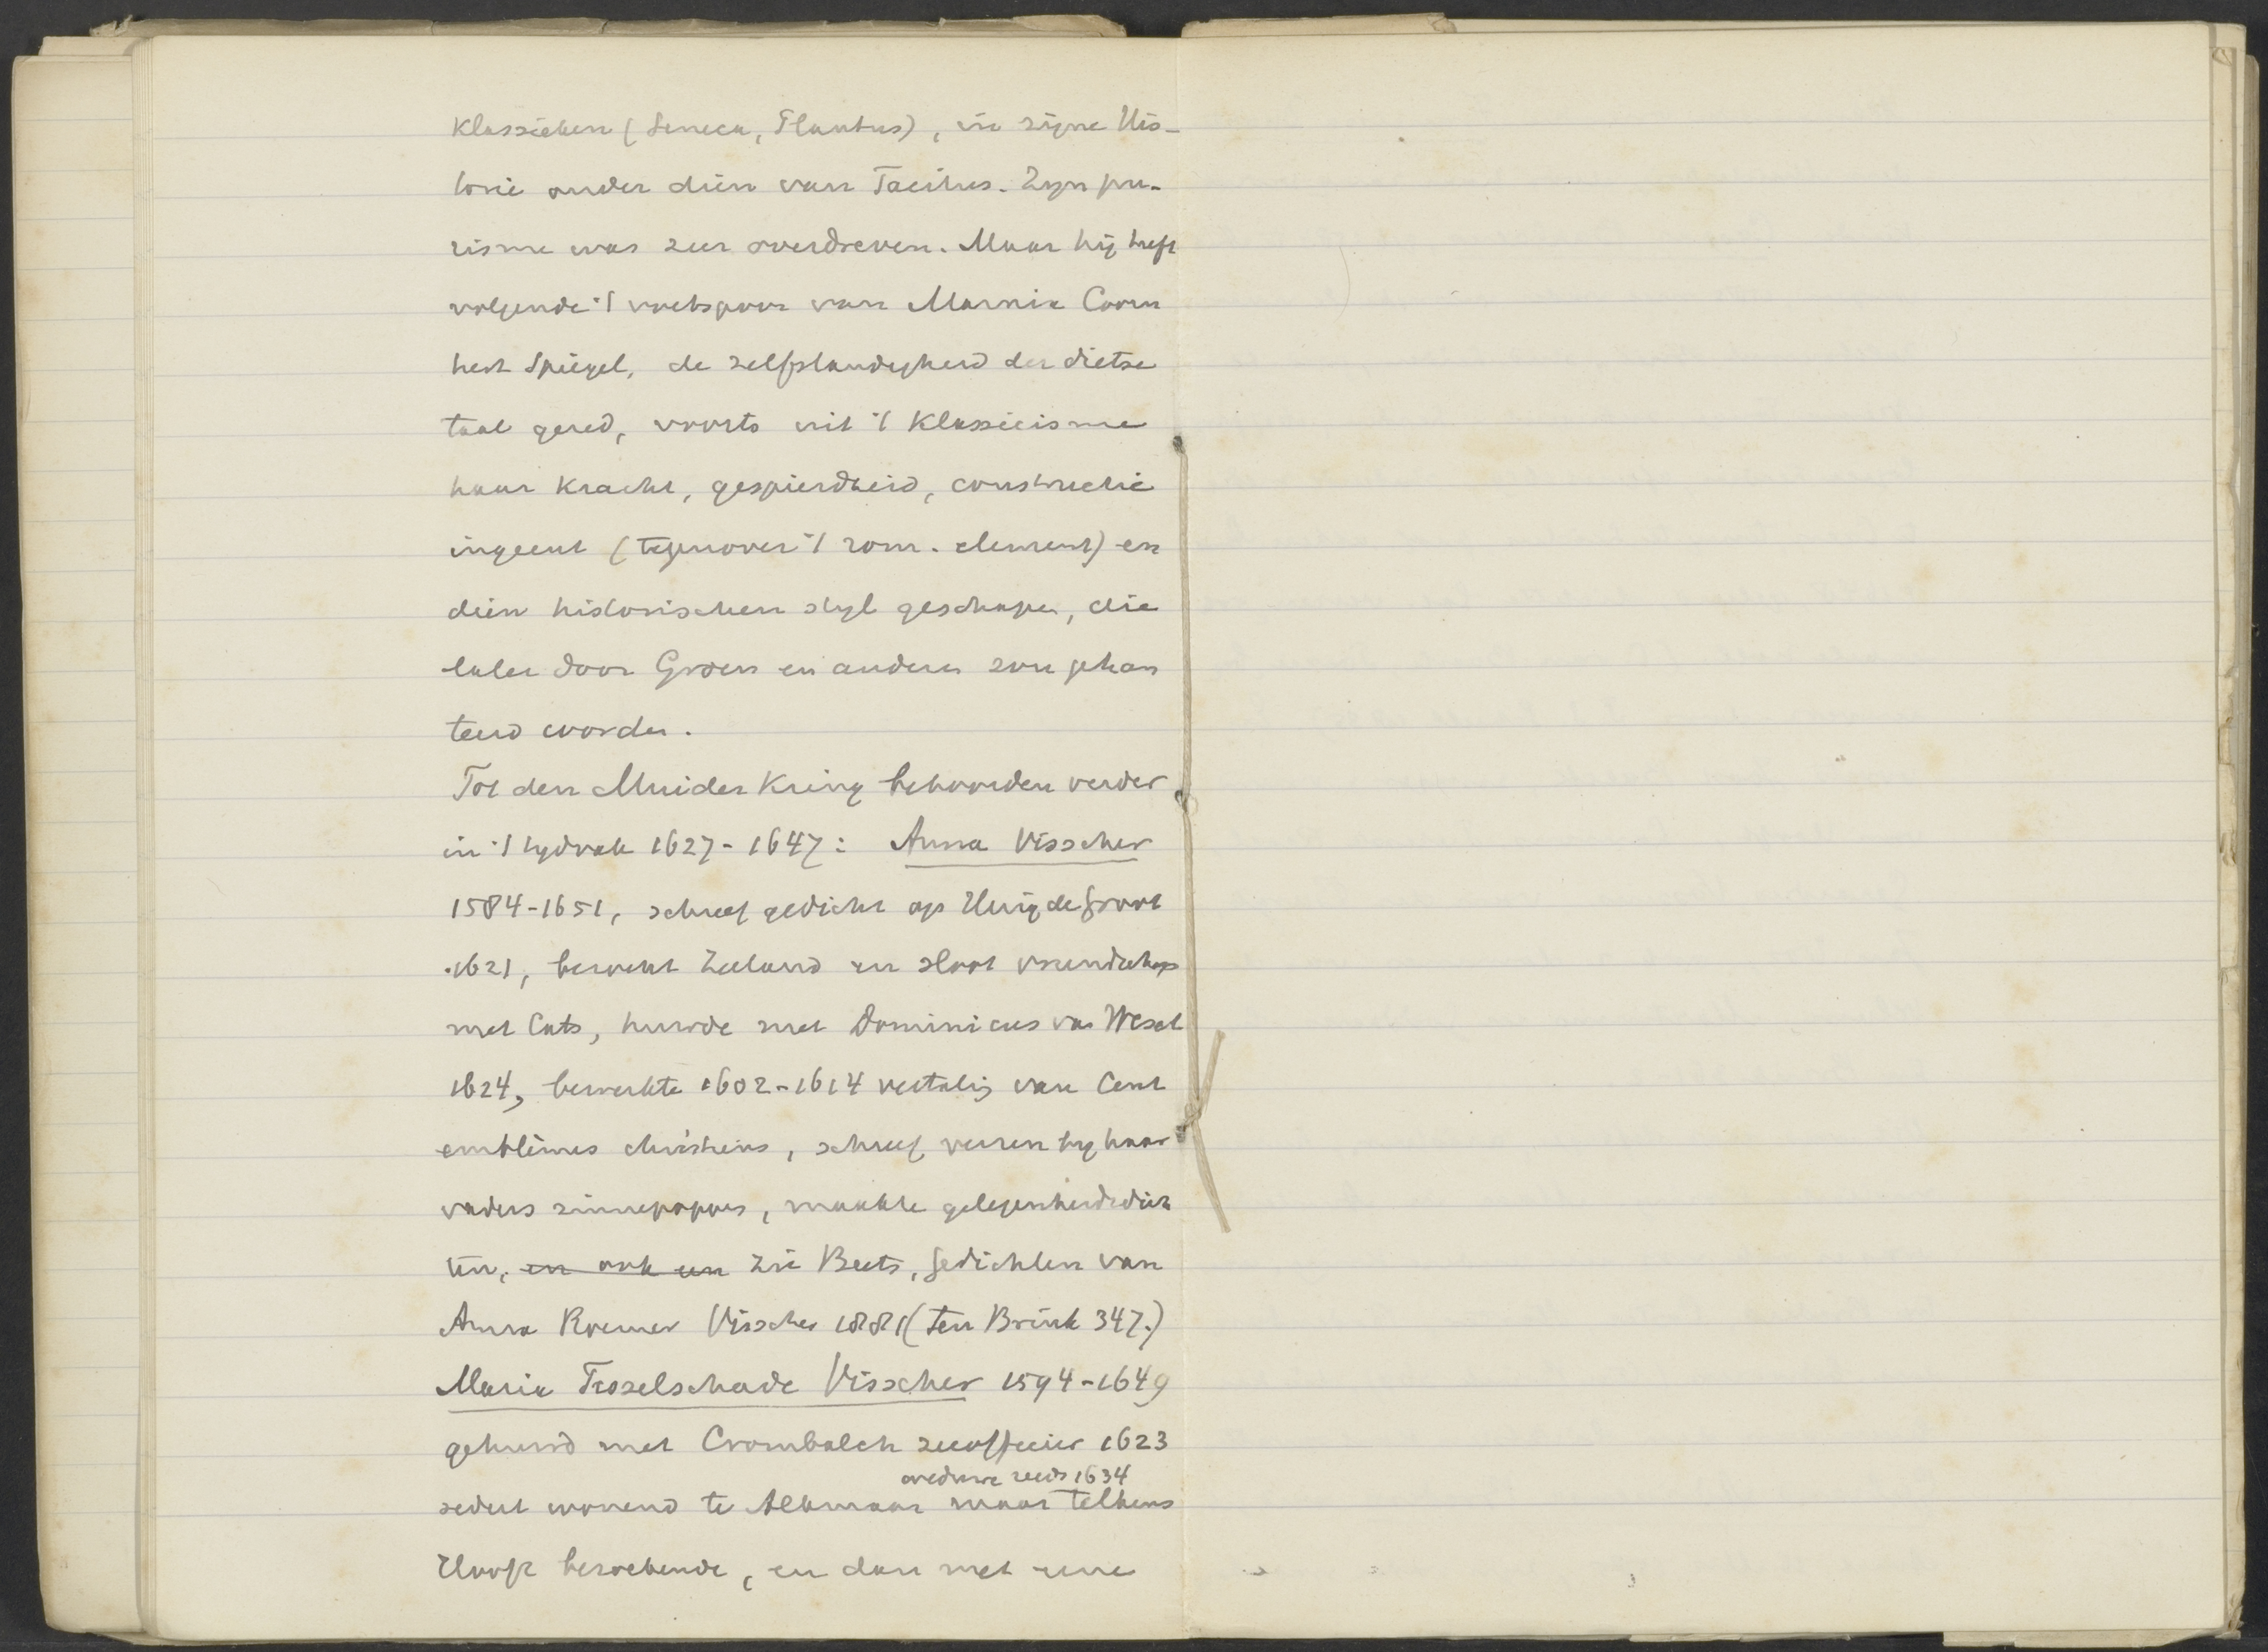 Klassieken (Seneca, Plautus), in zijne His-
torie onder dien van Tacitus. Zijn pu-
risme was zeer overdreven. Maar hij heeft
volgende 't voetspoor van Marnix Coorn
hert Spiegel, de zelfstandigheid der dietse
taal gered, voorts uit 't Klassicisme
haar kracht, gespierdheid, constructie
ingeent (tegenover 't rom. element) en
dien historischen styl geschapen, die
later door Groen en anderen zou gehan
teerd worden.
Tot den Muider Kring behoorden verder
in 't tydvak 1627-1647: Anna Visscher
1584-1651, schreef gedicht op Huig de Groot
1621, bezocht Zeeland en sloot vriendschap
met Cats, huwde met Dominicus van Wesel
1624, bewerkte 1602-1614 vertaling van Cent
emblèmes chrétiens, schreef verzen by haar
vaders sinnepoppen, maakte gelegenheidsdich
ten, en ook een Zie Beets, Gedichten van
Anna Roemer Visscher 1881 (ten Brink 347.)
Maria Tesselschade Visscher 1594-1649
gehuwd met Crombalch zeeofficier 1623
weduwe reeds 1634
sedert wonend te Alkmaar maar telkens
Hooft bezoekende, en dan met eene